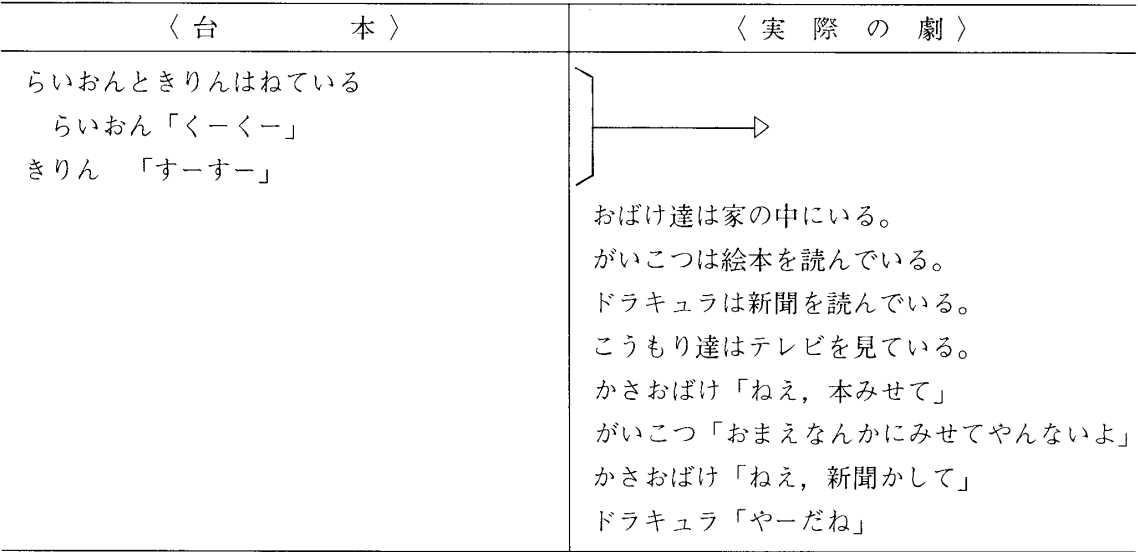 〈台　　　本〉
〈実　際　の　劇〉
らいおんときりんはねている
　らいおん「くーくー」
きりん　「すーすー」
おばけ達は家の中にいる。
がいこつは絵本を読んでいる。
ドラキュラは新聞を読んでいる。
こうもり達はテレビを見ている。
かさおばけ「ねえ，本みせて」
がいこつ「おまえなんかにみせてやんないよ」
かさおばけ「ねえ，新聞かして」
ドラキュラ「やーだね」